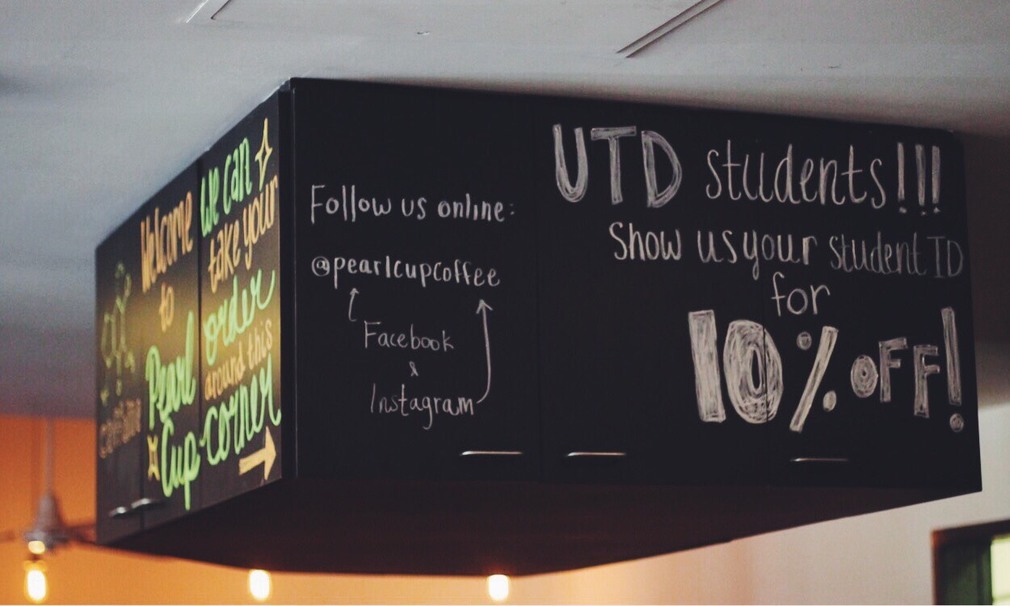 Welcome
to
Pearl
Cup
we can
take your
order
around this
corner
Follow us online:
@pearlcupcoffee
Facebook
&
Instagram
UTD students!!!
Show us your student ID
for
10% OFF!